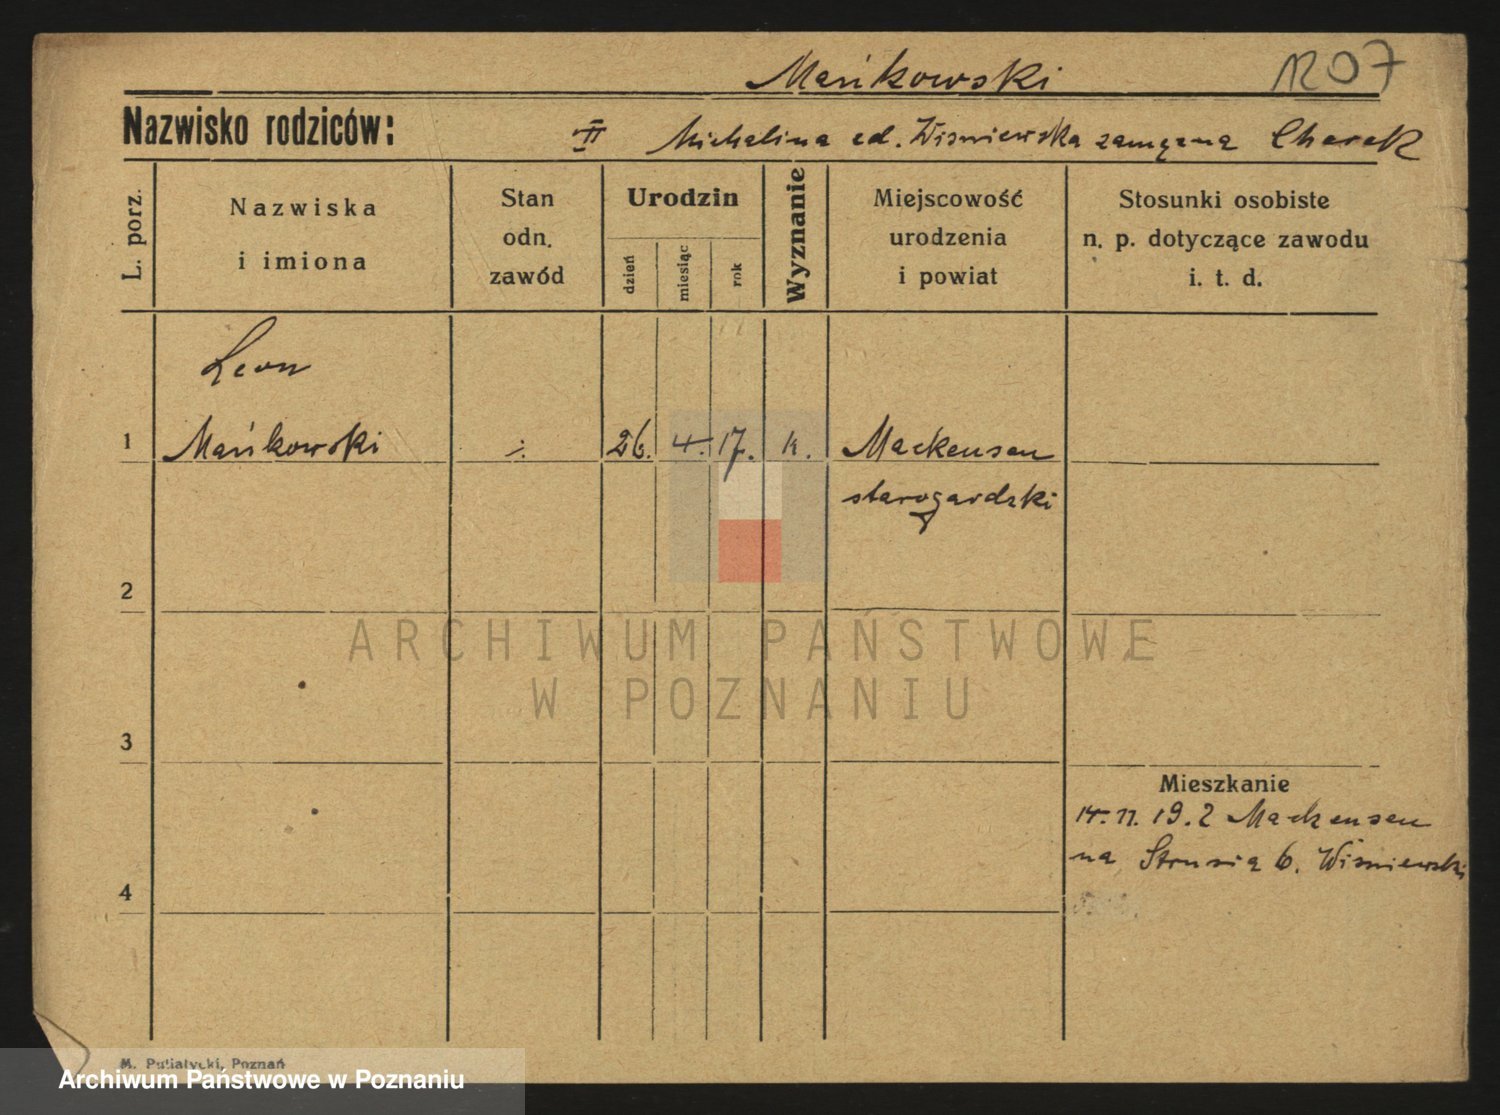 Mańkowski 1207
Nazwisko rodziców: II Michalina cd. Wiśniewska zamężna
L. porz.
Nazwiska
i imiona
Stan
odn.
zawód
Urodzin
dzień
miesiąc
rok
Wyznanie
Miejscowość
urodzenia
i powiat
Stosunki osobiste
n. p. dotyczące zawodu
i. t. d.
Leon
1 Mańkowski ; 26. 4. 17. k. Mackensen
starogardzki
2
ARCHIWUM PAŃSTWOWE
W POZNANIU
3
Mieszkanie
14. 11. 19. 2 Mackensen
na Strusia 6. Wiśniewski
4
M. Putiatycki, Poznań
Archiwum Państwowe w Poznaniu